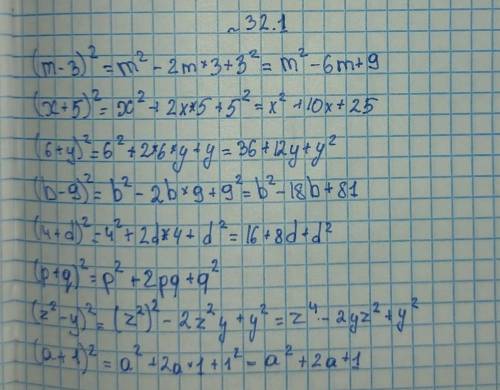 №32.1
(m-3)² = m² - 2m*3+3² = m² - 6m+9
(x+5)² = x² + 2x*5 + 5² = x² + 10x + 25
(6+y)² = 6² + 2*6*y + y = 36 + 12y + y²
(b-9)² = b² - 2b*9 + 9² = b² - 18b + 81
(4+d)² = 4² + 2d*4 + d² = 16 + 8d + d²
(p+q)² = p² + 2pq + q²
(z²-y)² = (z²)² - 2z²y + y² = z⁴ - 2yz² + y²
(a+1)² = a² + 2a*1 + 1² - a² + 2a + 1